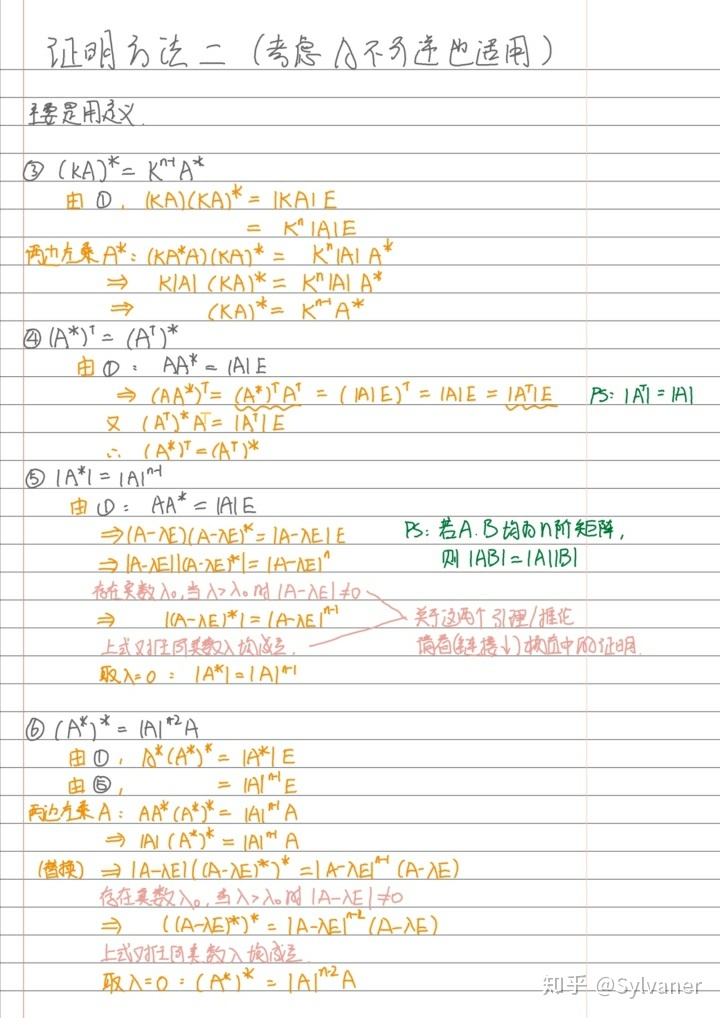 证明方法二（考虑A不可逆也适用）
主要是用定义.
③ (KA)* = Kⁿ⁻¹A*
由①, (KA)(KA)* = |KA|E
= Kⁿ|A|E
两边左乘A*: (KA*A)(KA)* = Kⁿ|A|A*
⇒ K|A|(KA)* = Kⁿ|A|A*
⇒ (KA)* = Kⁿ⁻¹A*
④ (A*)ᵀ = (Aᵀ)*
由①: AA* = |A|E
⇒ (AA*)ᵀ = (A*)ᵀAᵀ = (|A|E)ᵀ = |A|E = |Aᵀ|E PS: |Aᵀ| = |A|
又 (Aᵀ)*Aᵀ = |Aᵀ|E
∴ (A*)ᵀ = (Aᵀ)*
⑤ |A*| = |A|ⁿ⁻¹
由①: AA* = |A|E
⇒ (A-λE)(A-λE)* = |A-λE|E PS: 若A.B均为n阶矩阵,
⇒ |A-λE||(A-λE)*| = |A-λE|ⁿ 则|AB|=|A||B|
存在实数λ₀,当λ>λ₀时|A-λE|≠0
⇒ |(A-λE)*| = |A-λE|ⁿ⁻¹ 关于这两个引理/推论
上式对任何实数λ均成立. 请看(链接↓)中的证明.
取λ=0: |A*| = |A|ⁿ⁻¹
⑥ (A*)* = |A|ⁿ⁻²A
由①, A*(A*)* = |A*|E
由⑤, = |A|ⁿ⁻¹E
两边左乘A: AA*(A*)* = |A|ⁿ⁻¹A
⇒ |A|(A*)* = |A|ⁿ⁻¹A
(替换) ⇒ |A-λE|((A-λE)*)* = |A-λE|ⁿ⁻¹(A-λE)
存在实数λ₀,当λ>λ₀时|A-λE|≠0
⇒ ((A-λE)*)* = |A-λE|ⁿ⁻²(A-λE)
上式对任何实数λ均成立.
取λ=0: (A*)* = |A|ⁿ⁻²A
知乎 @Sylvaner